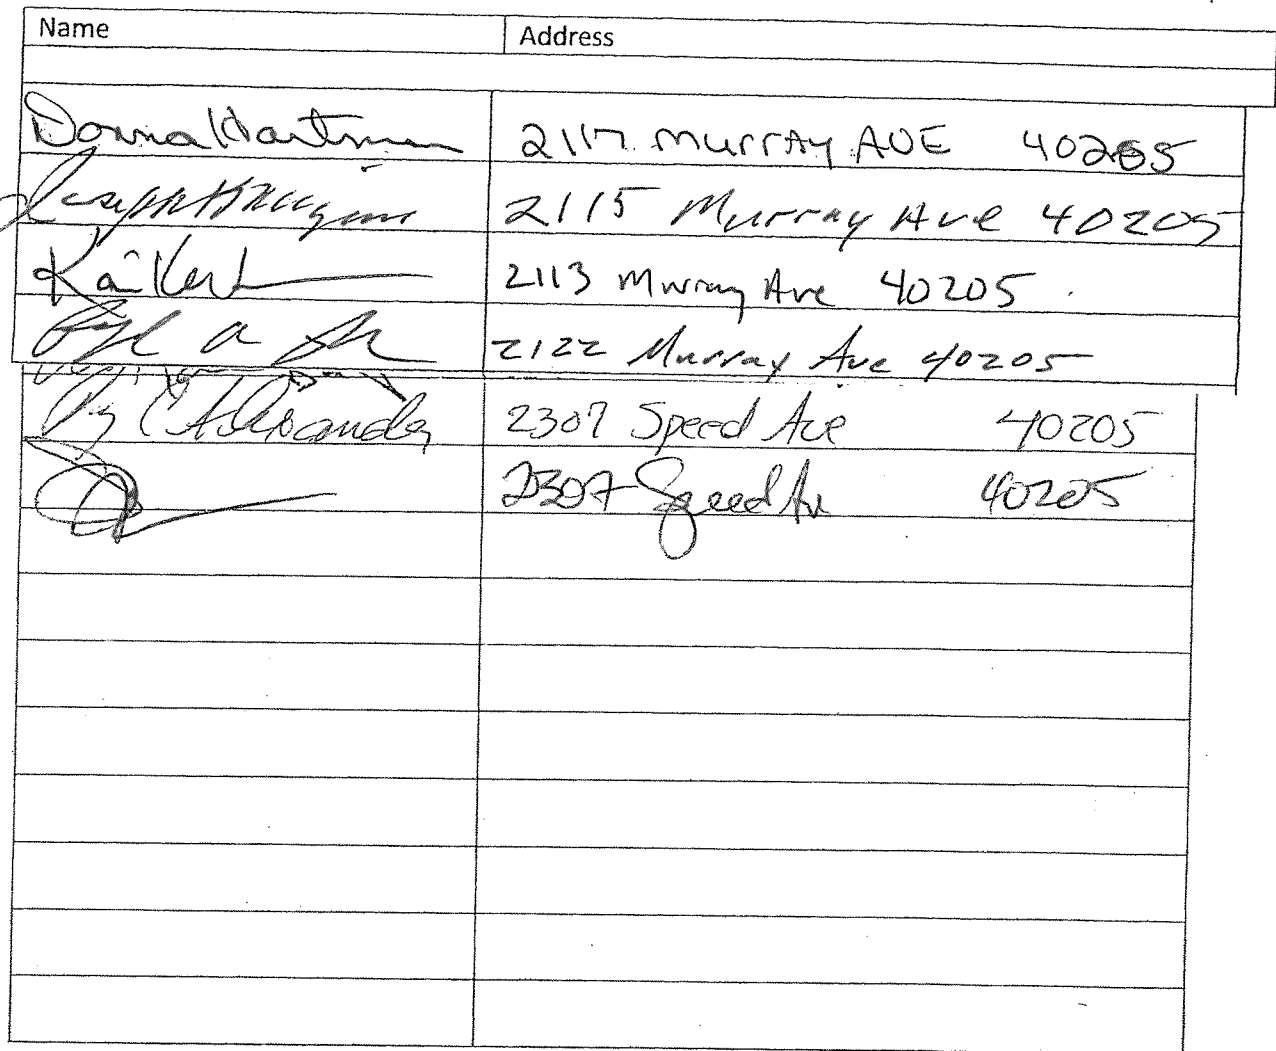 Name Address
Donna Hartman 2117 Murray AVE 40205
2115 Murray Ave 40205
2113 Murray Ave 40205
2122 Murray Ave 40205
Alexander 2307 Speed Ave 40205
2307 Speed Av 40205